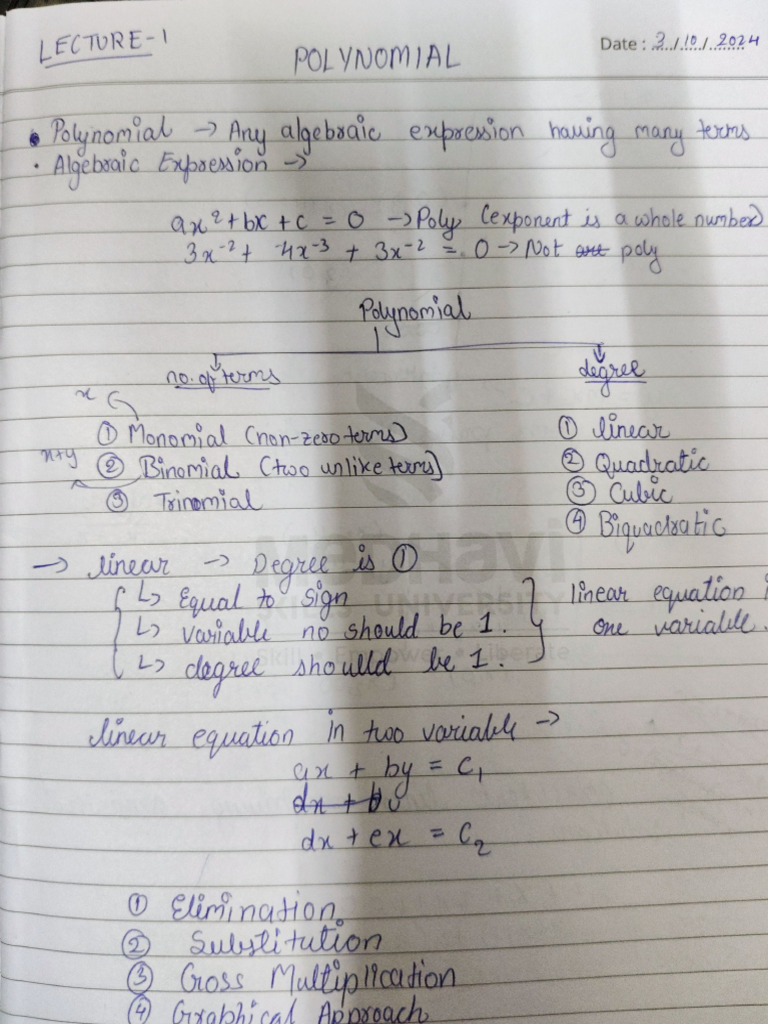 LECTURE-1
POLYNOMIAL
Date : 3/10/2024
• Polynomial → Any algebraic expression having many terms
• Algebraic Expression →
ax² + bx + c = 0 → Poly (exponent is a whole number)
3x⁻² + 4x⁻³ + 3x⁻² = 0 → Not poly
Polynomial
no. of terms
degree
x
① Monomial (non-zero terms)
① linear
x+y
② Binomial (two unlike terms)
② Quadratic
③ Trinomial
③ Cubic
④ Biquadratic
→ linear → Degree is ①
↳ Equal to sign
↳ variable no should be 1.
↳ degree shoulld be 1.
linear equation i
one variable.
MEDHAVI
SKILLS UNIVERSITY
Skill • Empower • Liberate
linear equation in two variable →
ax + by = C₁
dx + by
dx + ex = C₂
① Elimination
② Substitution
③ Cross Multiplication
④ Graphical Approach